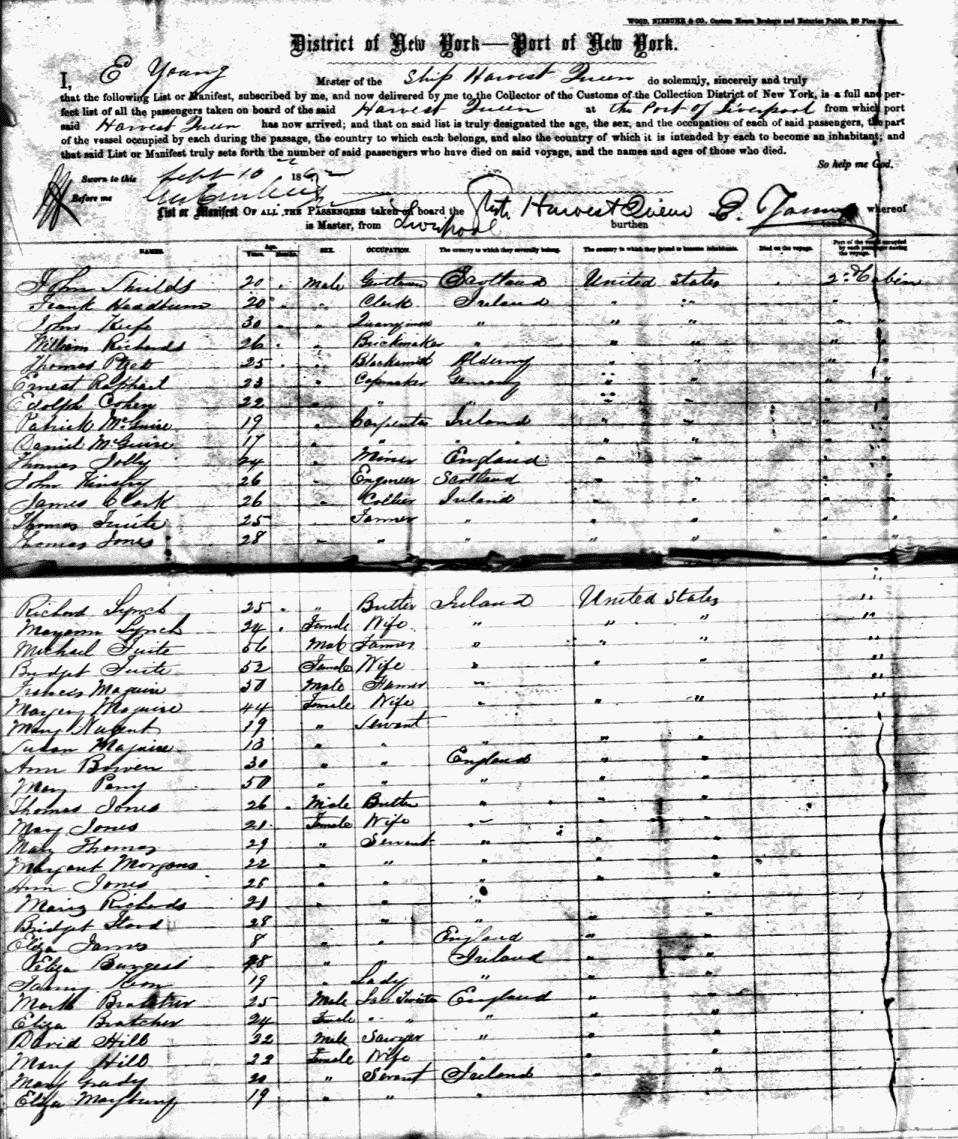 WOOD, NIEBUHR & CO., Custom House Brokers and Notaries Public, 20 Pine Street.
District of New York—Port of New York.
I, E Young Master of the Ship Harvest Queen do solemnly, sincerely and truly
that the following List or Manifest, subscribed by me, and now delivered by me to the Collector of the Customs of the Collection District of New York, is a full and per-
fect list of all the passengers taken on board of the said Harvest Queen at the Port of Liverpool from which port
said Harvest Queen has now arrived; and that on said list is truly designated the age, the sex, and the occupation of each of said passengers, the part
of the vessel occupied by each during the passage, the country to which each belongs, and also the country of which it is intended by each to become an inhabitant; and
that said List or Manifest truly sets forth the number of said passengers who have died on said voyage, and the names and ages of those who died.
So help me God.
Sworn to this Sept 10 186
Before me
List or Manifest OF ALL THE PASSENGERS taken on board the Ship Harvest Queen E. Young whereof
is Master, from Liverpool burthen tons.
NAMES. Age. Years. Months. SEX. OCCUPATION. The country to which they severally belong. The country to which they intend to become inhabitants. Died on the voyage. Part of the vessel occupied by each passenger during the voyage.
John Shields 20 " Male Scotland United States 2d Cabin
Frank 20 " " Clerk Ireland " " "
John Keefe 30 " " Quarryman " " " "
William Richards 26 " " Brickmaker " " " "
Thomas 25 " " Blacksmith Alderny " " "
Ernest Raphael 23 " Capmaker Germany " " "
Edolph Cohen 22 " " " " "
Patrick McGuire 19 " Carpenter Ireland " " "
Daniel McGuire 17 " " " " " "
Thomas Jolly 24 " Miner England " " "
John 26 " Engineer Scotland " " "
James Clark 26 " Collier Ireland " " "
Thomas Tuite 25 " Farmer " " " "
Thomas Jones 28 " " " " " "
Richard Lynch 25 " " Butler Ireland United States "
Maryann Lynch 24 " Female Wife " " " "
Michael Tuite 56 Male Farmer " " " "
Bridget Tuite 52 Female Wife " " " "
Francis Maguire 50 Male Farmer " "
Margery Maguire 44 Female Wife " " " "
Mary Nugent 19 " Servant
Susan Maguire 13 " " " " "
Ann Bowen 30 " " England " "
Mary Perry 50 " " " " "
Thomas Jones 26 " Male Butler " " "
Mary Jones 21 Female Wife " " "
Mary Thomas 29 " Servant " " "
Margaret Morgans 22 " " " " "
Ann Jones 25 " " " "
Maria Richards 21 " " "
Bridget 28 " " " " "
Eliza James 8 " " England " "
Eliza Burgess 28 " " Ireland " "
Fanny 19 " Lady " " "
Mark Bratcher 25 Male England " "
Eliza Bratcher 24 Female " " " "
David Hill 22 Male Sawyer " " "
Mary Hill 22 Female Wife " " "
Mary Grady 20 " Servant Ireland " "
Eliza 19 " " " " "